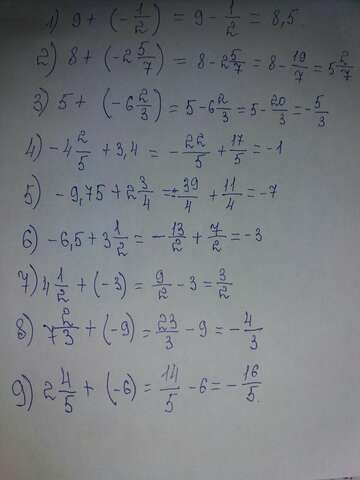 1) 9 + (-1/2) = 9 - 1/2 = 8,5.
2) 8 + (-2 5/7) = 8 - 2 5/7 = 8 - 19/7 = 5 2/7
3) 5 + (-6 2/3) = 5 - 6 2/3 = 5 - 20/3 = -5/3
4) -4 2/5 + 3,4 = -22/5 + 17/5 = -1
5) -9,75 + 2 3/4 = -39/4 + 11/4 = -7
6) -6,5 + 3 1/2 = -13/2 + 7/2 = -3
7) 4 1/2 + (-3) = 9/2 - 3 = 3/2
8) 7 2/3 + (-9) = 23/3 - 9 = -4/3
9) 2 4/5 + (-6) = 14/5 - 6 = -16/5.